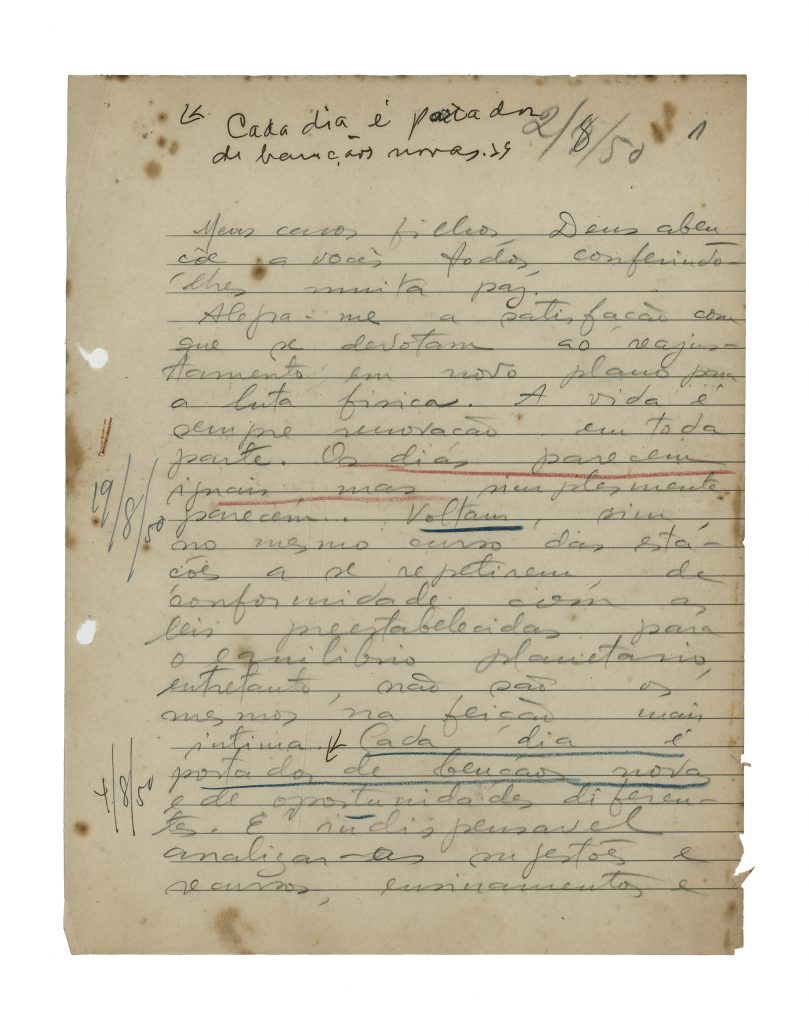 Cada dia é portador 2/8/50 1
de bençãos novas.
Meus caros filhos, Deus aben
çõe a vocês todos, conferindo-
lhes muita paz.
Alegra-me a satisfação com
que se devotam ao reajus-
tamento em novo plano para
a luta física. A vida é
sempre renovação em toda
parte. Os dias parecem
iguais mas simplesmente
19/8/50
parecem... Voltam, sim,
no mesmo curso das esta-
ções a se repetirem de
conformidade com as
leis preestabelecidas para
o equilibrio planetário,
entretanto, não são os
mesmos na feição mais
intima. Cada dia é
portador de bençãos novas
4/8/50
e de oportunidades diferen-
tes. É indispensavel
analizar-as sugestões e
recursos, ensinamentos e